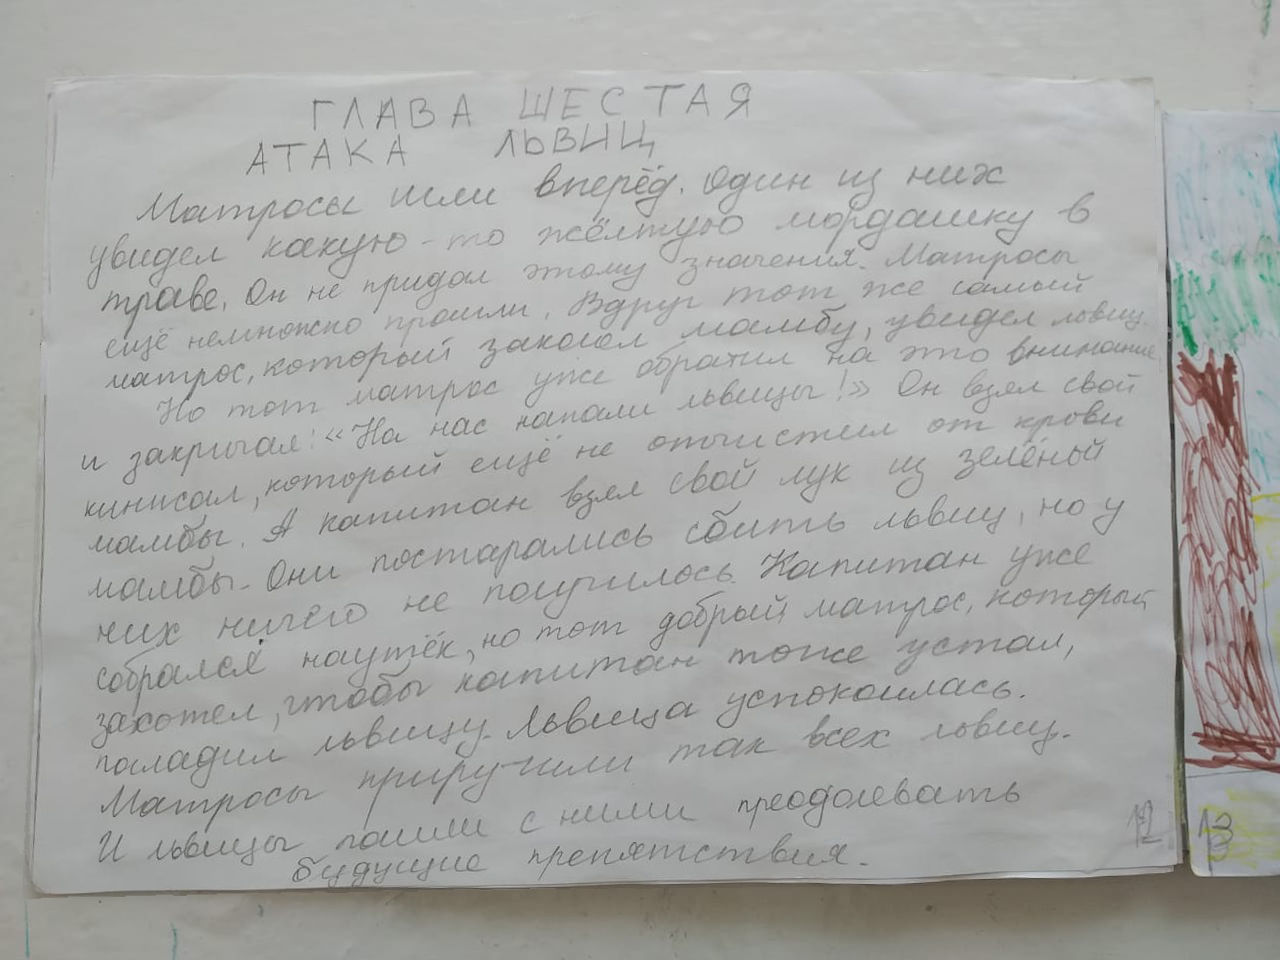 ГЛАВА ШЕСТАЯ
АТАКА ЛЬВИЦ
Матросы шли вперёд. Один из них
увидел какую-то жёлтую мордашку в
траве. Он не придал этому значения. Матросы
ещё немножко прошли. Вдруг тот же самый
матрос, который заколол мамбу, увидел львиц.
Но тот матрос уже обратил на это внимание
и закричал: «На нас напали львицы!» Он взял свой
кинисал, который ещё не отчистил от крови
мамбы. А капитан взял свой лук из зелёный
мамбы. Они постарались сбить львиц, но у
них ничего не получилось. Капитан уже
собрался наутёк, но тот добрый матрос, который
захотел, чтобы капитан тоже устал,
погладил львицу. Львица успокоилась.
Матросы приручили так всех львиц.
И львицы пошли с ними преодолевать
будущие препятствия.
12
13